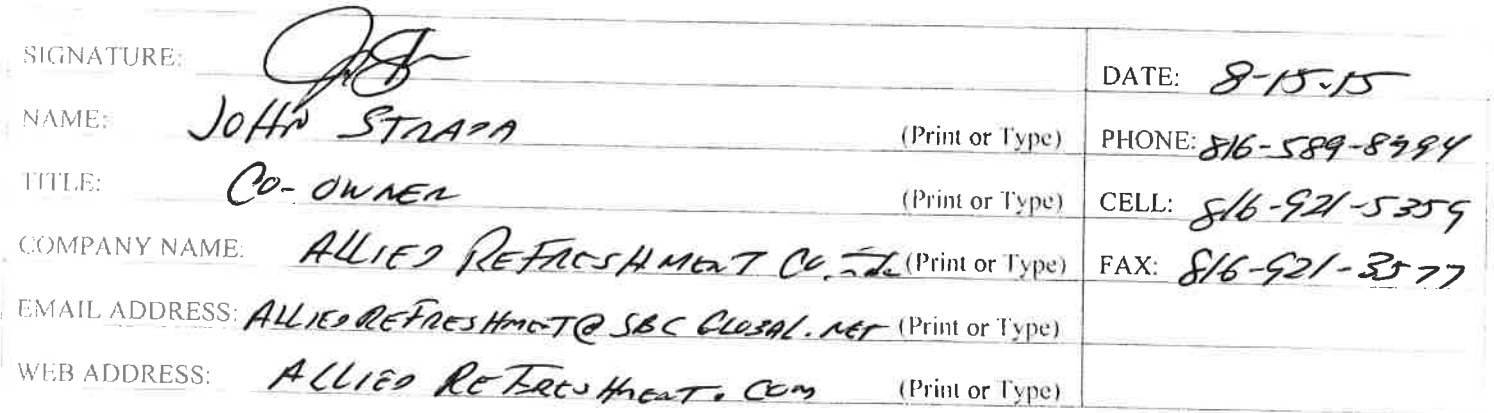 SIGNATURE: DATE: 8-15-15
NAME: JOHN STRADA (Print or Type) PHONE: 816-589-8994
TITLE: CO-OWNER (Print or Type) CELL: 816-921-5359
COMPANY NAME: ALLIED REFRESHMENT CO. Inc (Print or Type) FAX: 816-921-3577
EMAIL ADDRESS: ALLIEDREFRESHMENT@SBCGLOBAL.NET (Print or Type)
WEB ADDRESS: ALLIED REFRESHMENT.COM (Print or Type)